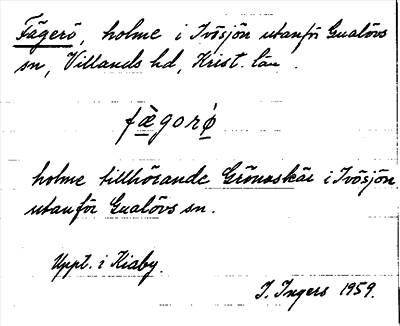 Fägerö, holme i Ivösjön utanför Gualövs
sn, Villands hd, Krist. län.
fægorǿ
holme tillhörande Grönaskär i Ivösjön
utanför Gualövs sn.
Uppt. i Kiaby.
I. Ingers 1959.